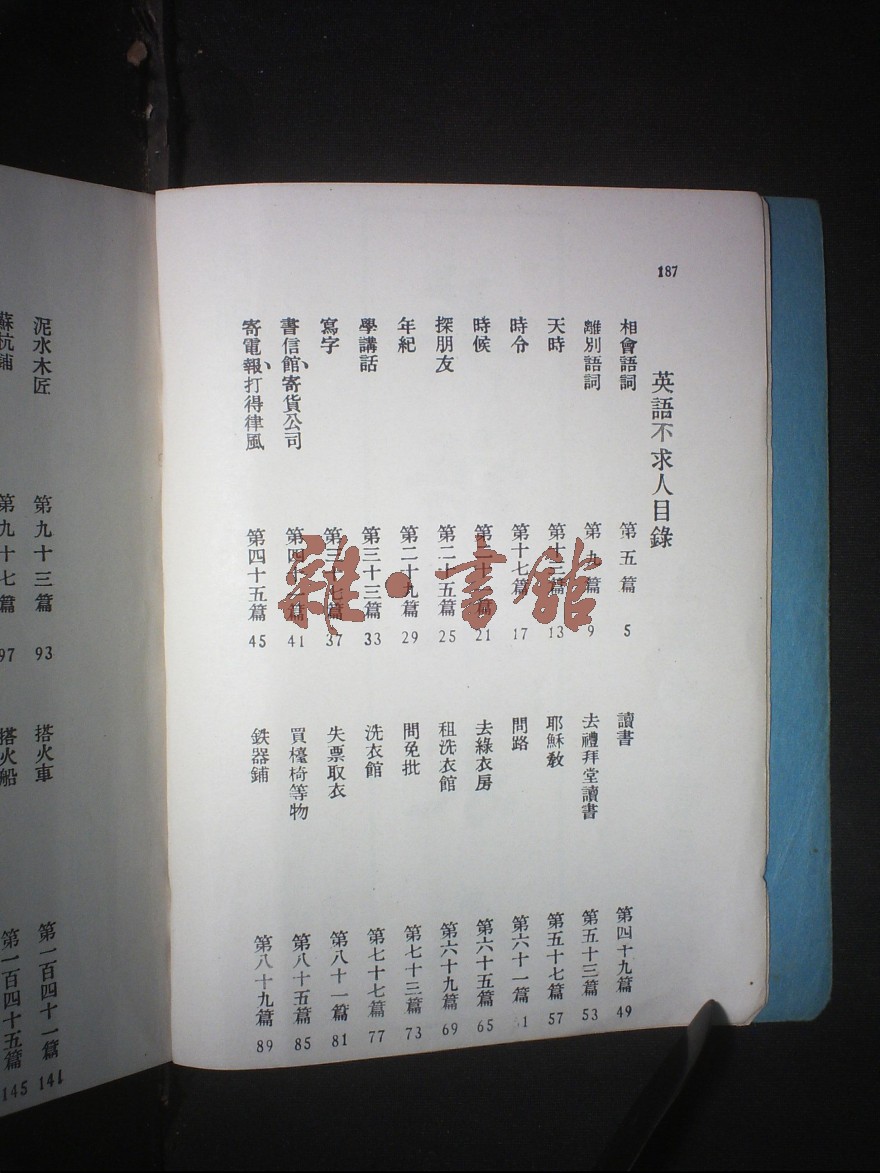 187
英語不求人目錄
相會語詞 第五篇 5
離別語詞 第九篇 9
天時 第十三篇 13
時令 第十七篇 17
時候 第二十一篇 21
探朋友 第二十五篇 25
年紀 第二十九篇 29
學講話 第三十三篇 33
寫字 第三十七篇 37
書信館、寄貨公司 第四十一篇 41
寄電報、打得律風 第四十五篇 45
讀書 第四十九篇 49
去禮拜堂讀書 第五十三篇 53
耶穌教 第五十七篇 57
問路 第六十一篇
去綠衣房 第六十五篇 65
租洗衣館 第六十九篇 69
問免批 第七十三篇 73
洗衣館 第七十七篇 77
失票取衣 第八十一篇 81
買檯椅等物 第八十五篇 85
鉄器鋪 第八十九篇 89
泥水木匠 第九十三篇 93
蘇杭鋪 第九十七篇 97
搭火車 第一百四十一篇 141
搭火船 第一百四十五篇 145
雜·書館